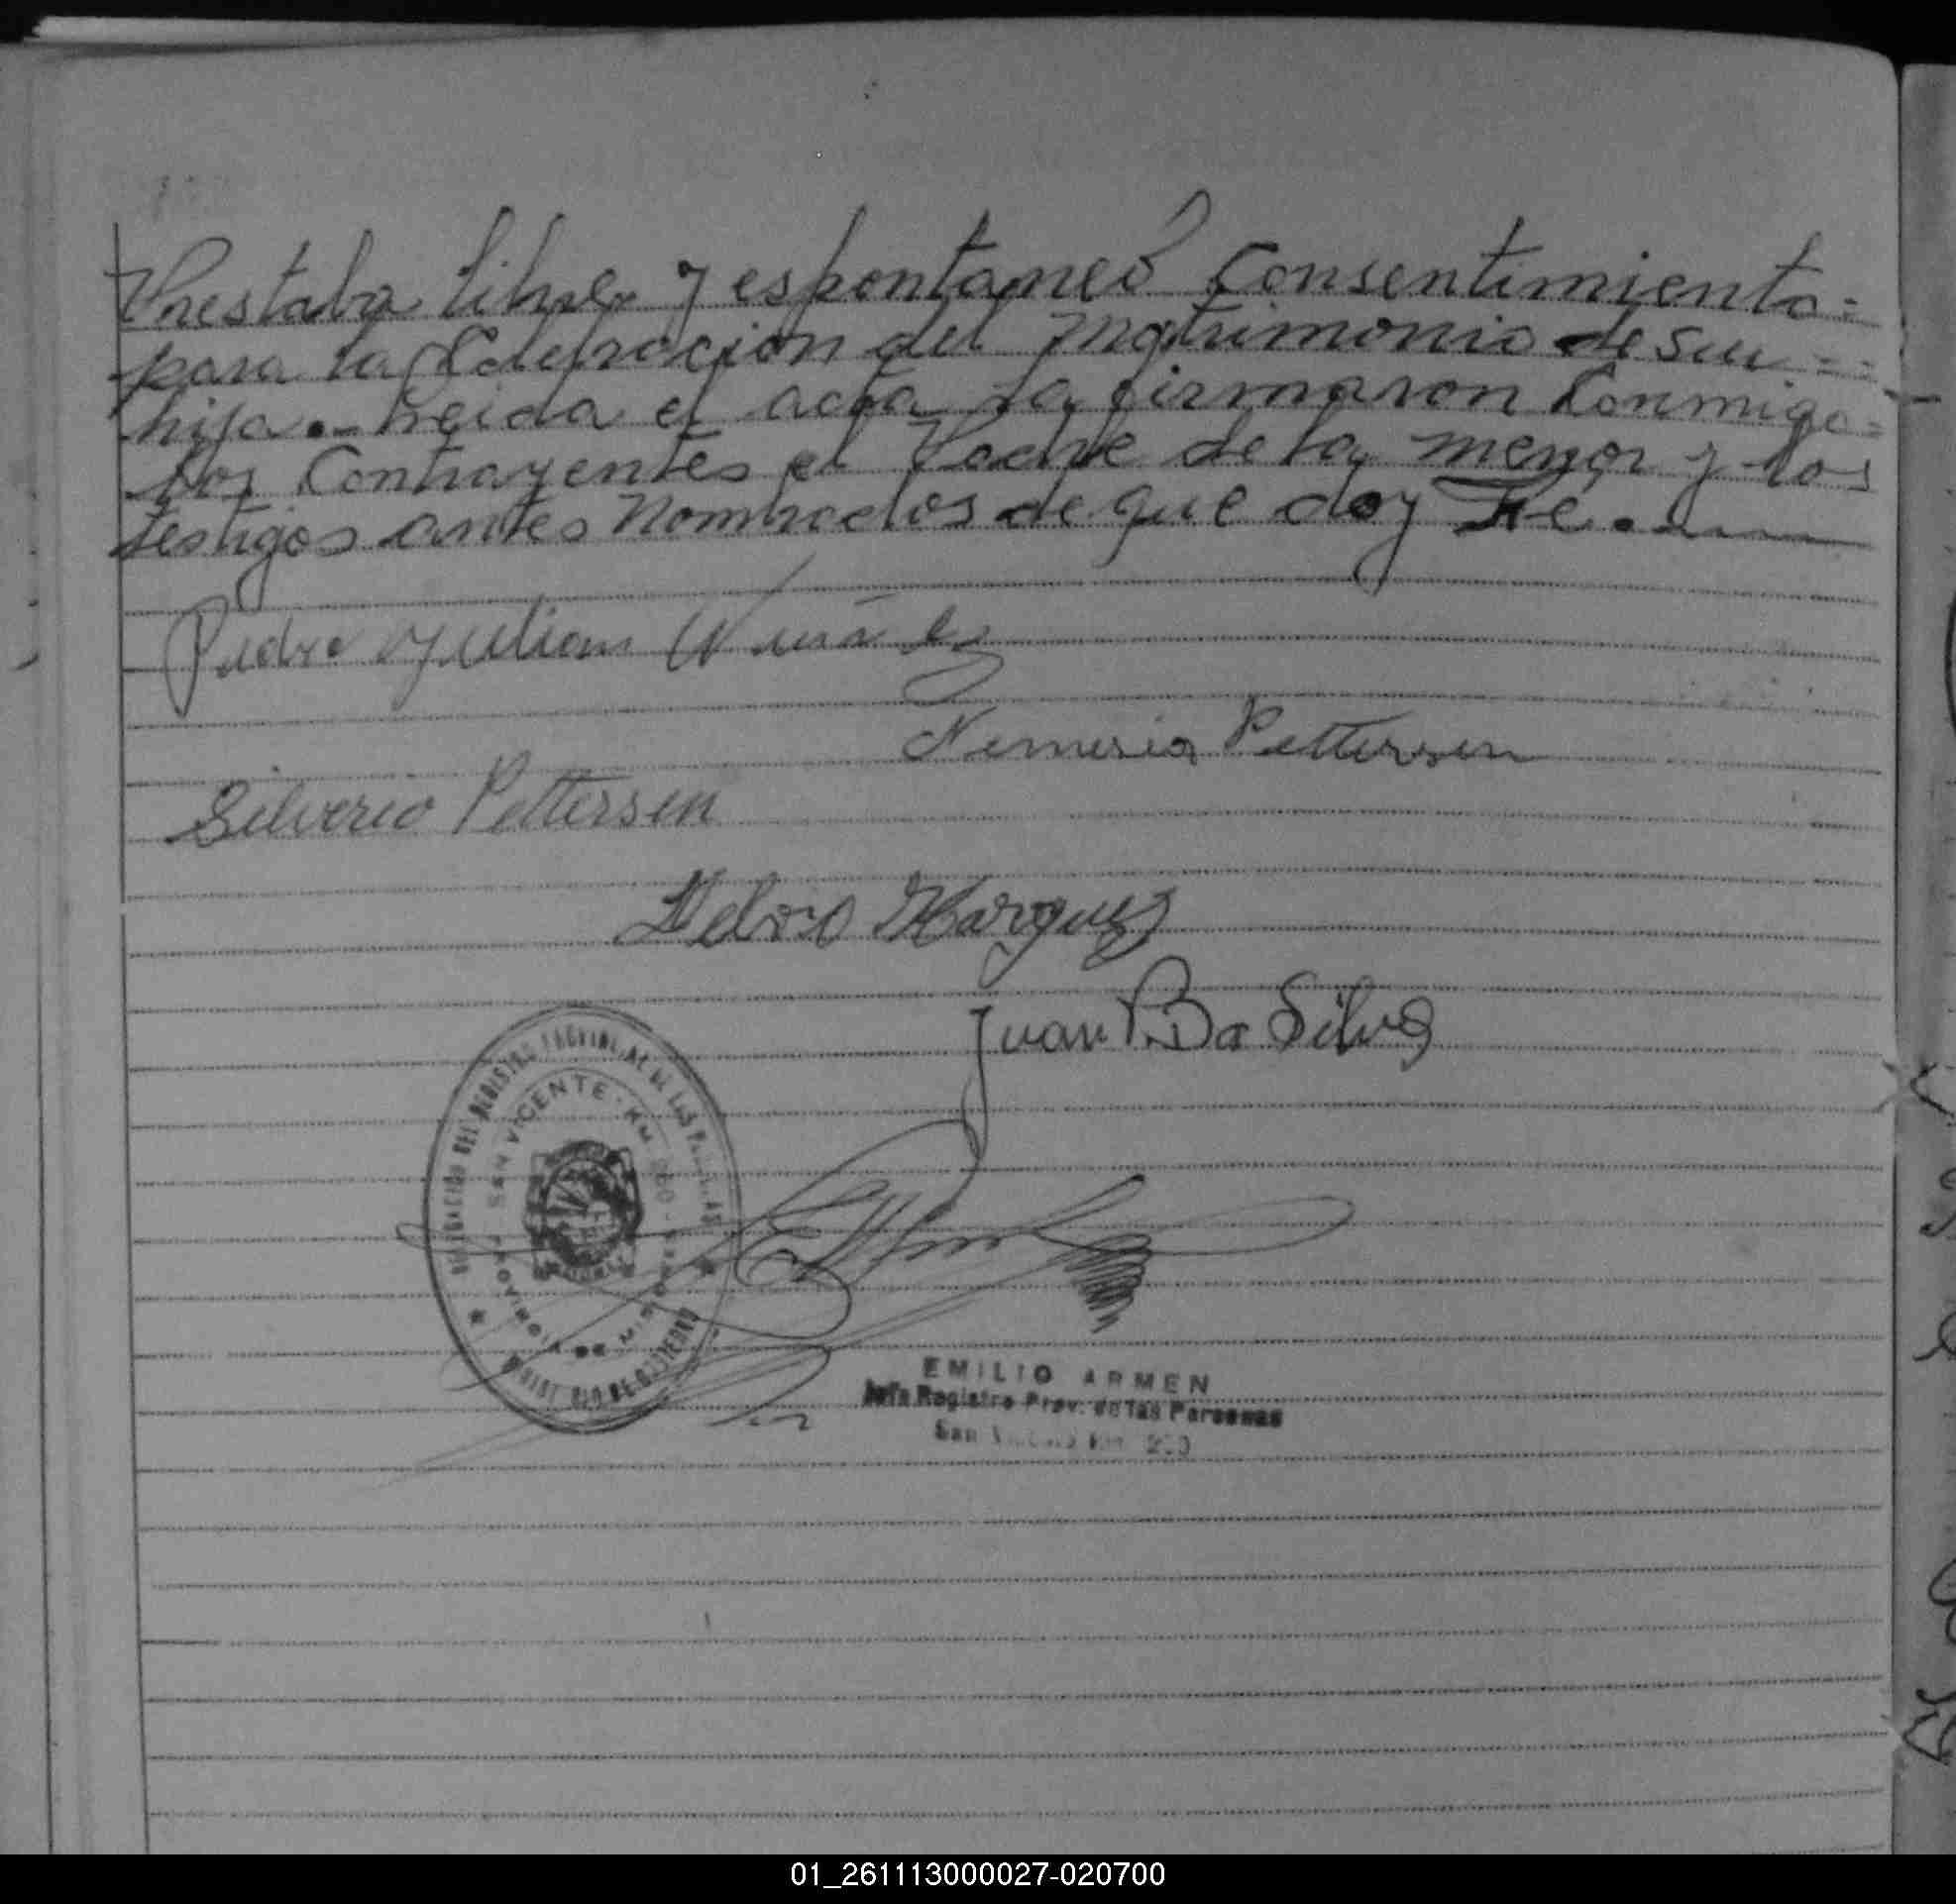 Prestaba libre y espontaneo Consentimiento=
para la Celebracion del Matrimonio de su ==
hija.- Leida el acta la firmaron Conmigo=
los Contrayentes el Padre de la menor y los
testigos antes Nombrados de que doy Fe.
Pedro Julian
Nemesia Pettersen
Silverio Pettersen
Marquez
Juan Da Silva
DELEGACION DEL REGISTRO PROVINCIAL DE LAS PERSONAS
SAN VICENTE - KM
PROVINCIA DE MISIONES
EMILIO ARMEN
Jefe Registro Prov. de las Personas
San
01_261113000027-020700